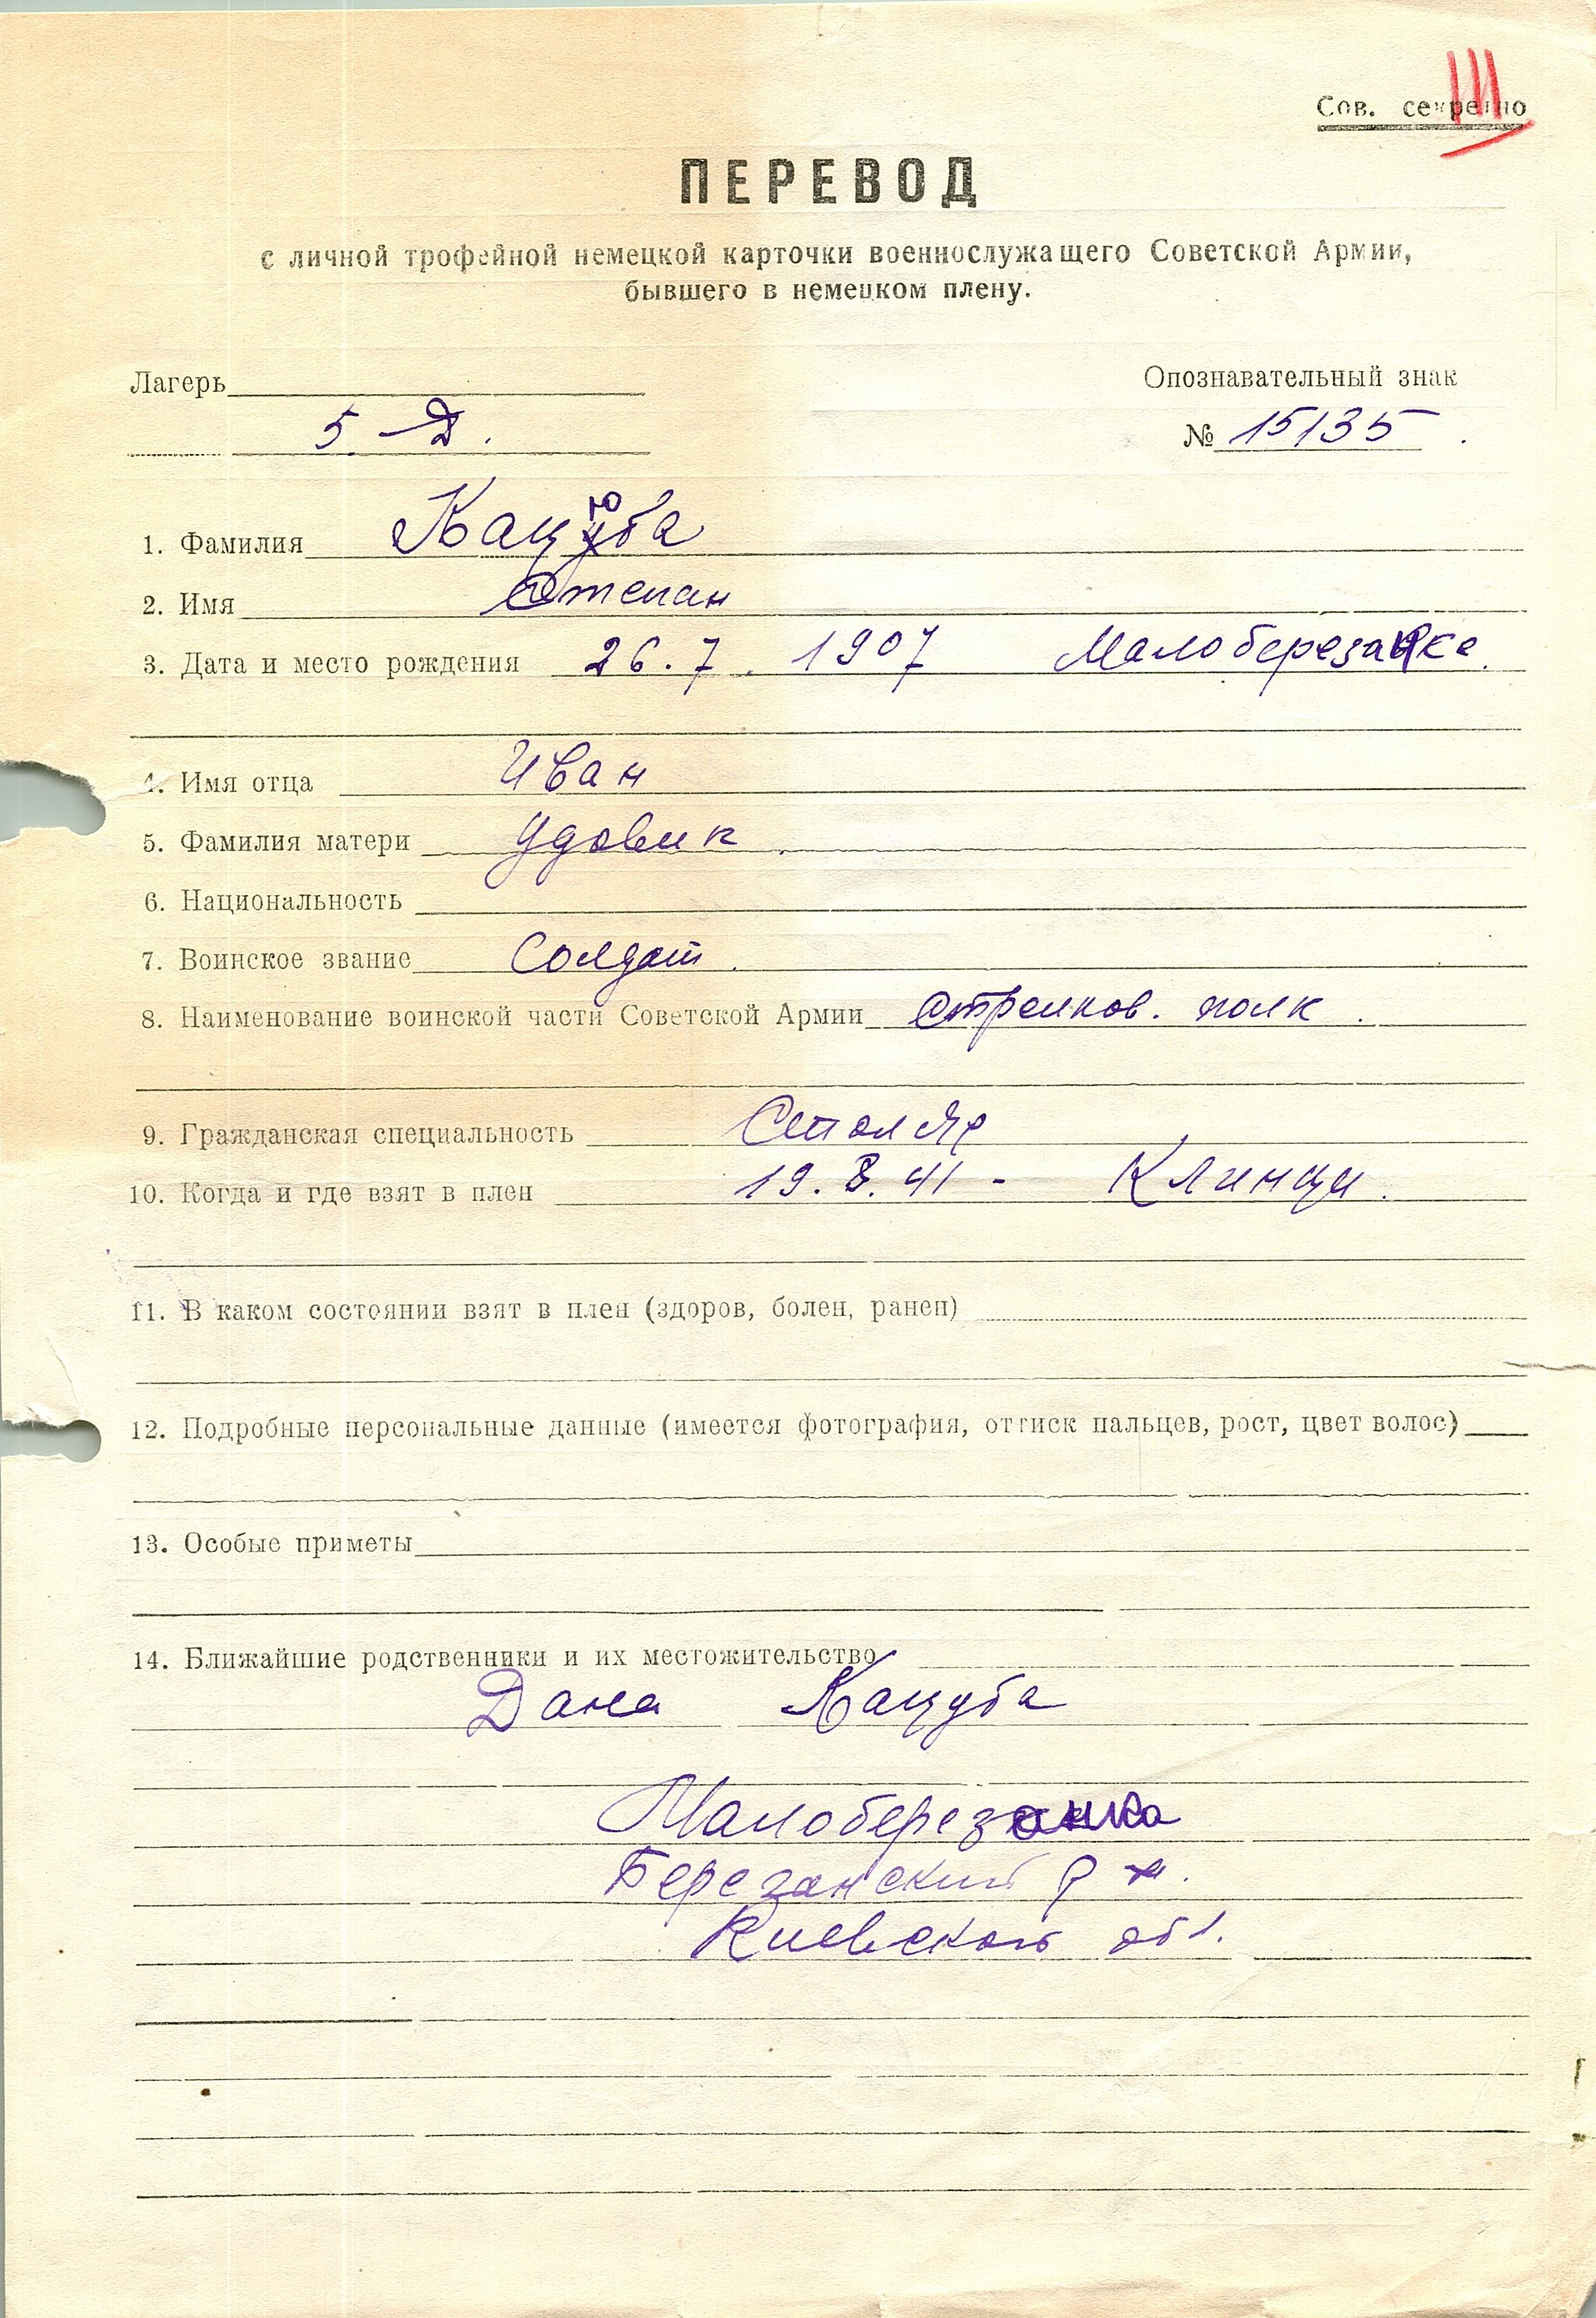 Сов. секретно
III
ПЕРЕВОД
с личной трофейной немецкой карточки военнослужащего Советской Армии,
бывшего в немецком плену.
Лагерь
Опознавательный знак
5 Д.
№ 15135.
1. Фамилия Кацюба
2. Имя Степан
3. Дата и место рождения 26.7.1907 Малоберезанка
4. Имя отца Иван
5. Фамилия матери Удовик.
6. Национальность
7. Воинское звание Солдат.
8. Наименование воинской части Советской Армии Стрелков. полк.
9. Гражданская специальность Столяр
10. Когда и где взят в плен 19.8.41 - Клинцы.
11. В каком состоянии взят в плен (здоров, болен, ранен)
12. Подробные персональные данные (имеется фотография, оттиск пальцев, рост, цвет волос)
13. Особые приметы
14. Ближайшие родственники и их местожительство
Кацуба
Малоберезанка
Березанский р-н.
Киевской обл.